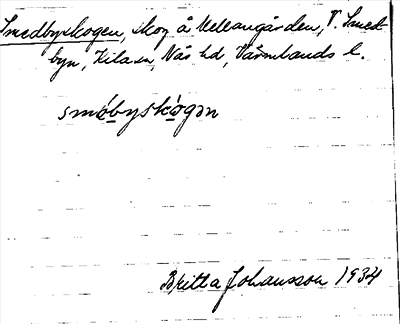 Smedbyskogen, skog å Mellangården, V. Smed-
byn, Kila sn, Näs hd, Värmlands l.
smòbyskògən
Britta Johansson 1934